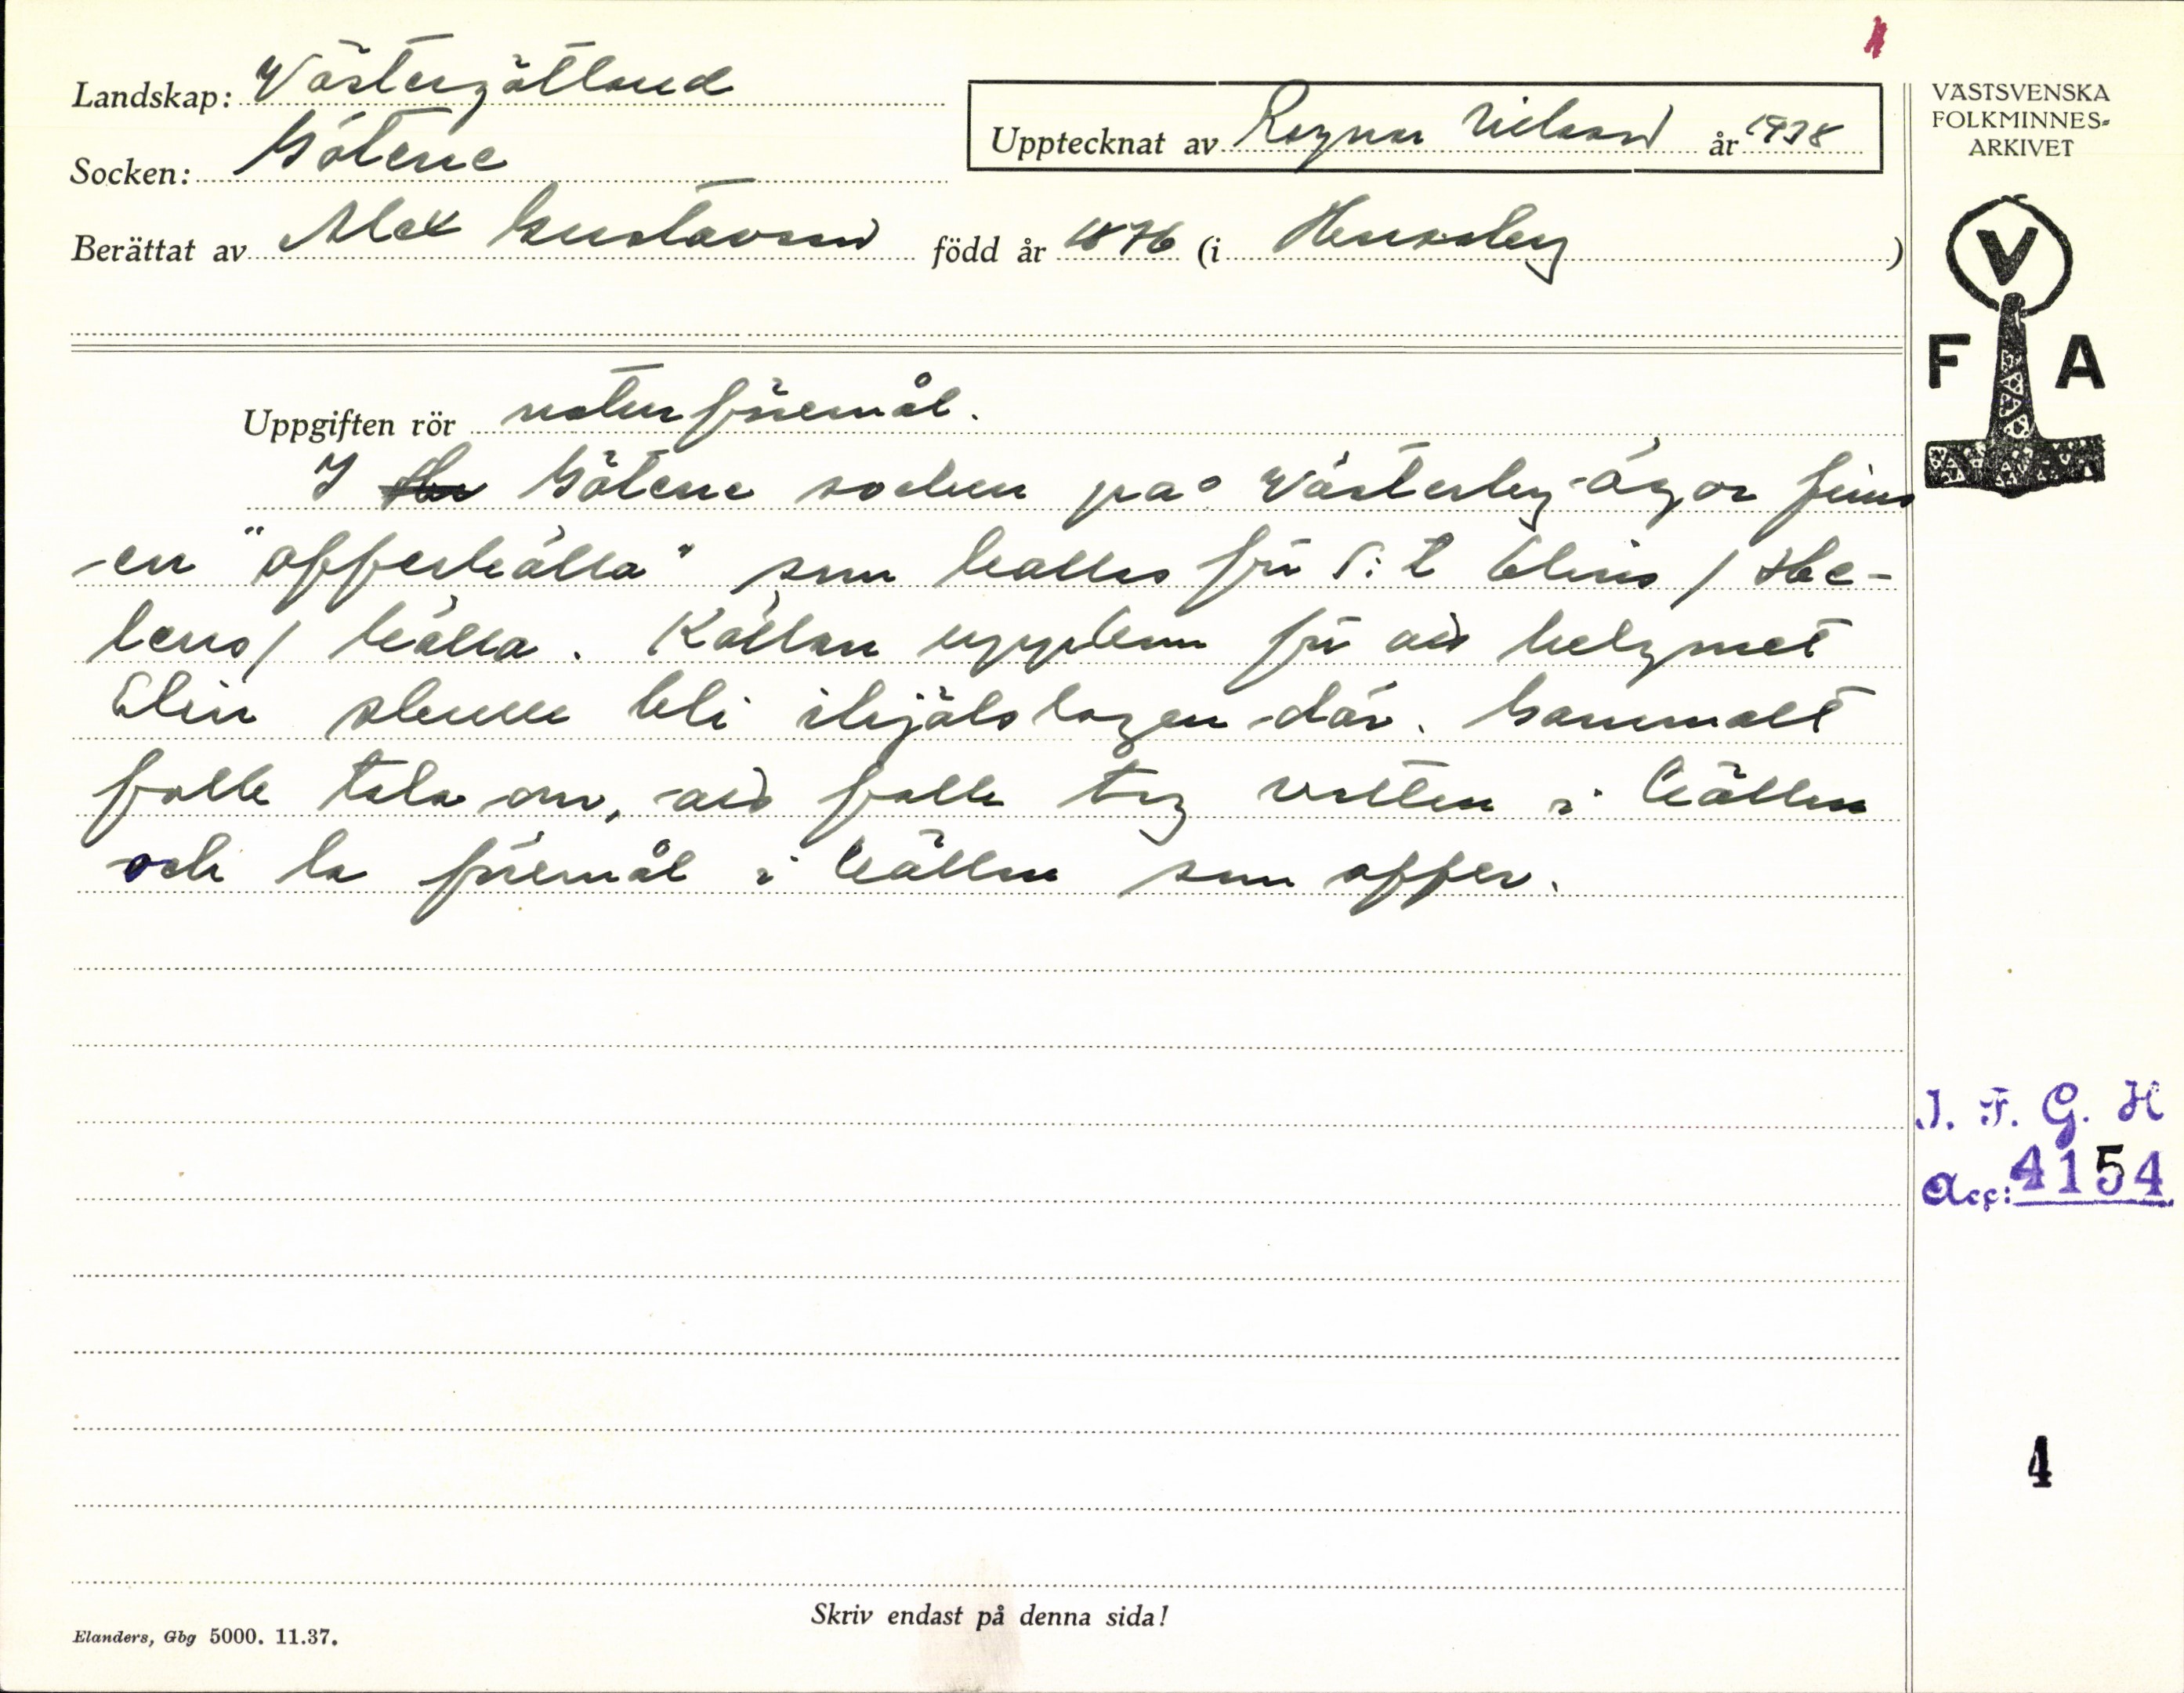 Landskap: Västergötland
Socken: Götene
Upptecknat av Ragnar Nilsson år 1938
Berättat av Alex Gustavsson född år 1876 (i Husaby)
VÄSTSVENSKA
FOLKMINNES-
ARKIVET
V
F A
Uppgiften rör naturföremål.
I Götene socken på Västerby ägor finns
en "offerkälla" som kallas för S:t Elins / He-
lens / källa. Källan uppkom för att helgonet
Elin skulle bli ihjälslagen där. Gammalt
folk tala om, att folk tog vatten i källan
och la föremål i källan som offer.
I. F. G. H
Acc: 4154
4
Skriv endast på denna sida!
Elanders, Gbg 5000. 11.37.